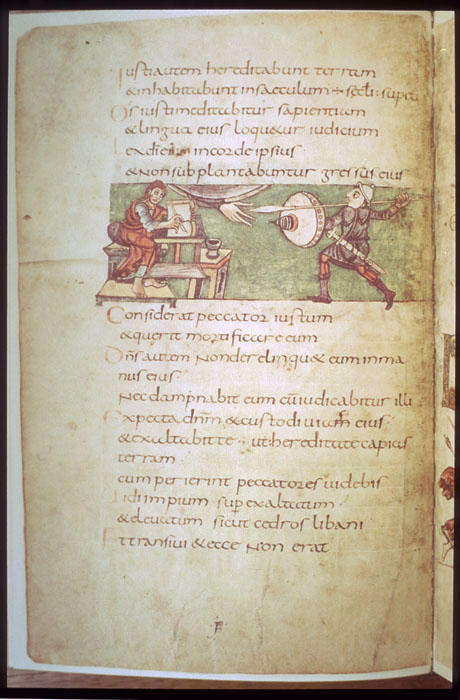 Iusti autem hereditabunt terram
& inhabitabunt in saeculum
Os iusti meditabitur sapientiam
& lingua eius loqu&ur iudicium
Lex di in corde ipsius
& non subplantabuntur gressus eius
Considerat peccator iustum
& querit mortificare eum
Dns autem non derelinqu& eum in ma
nus eius
Nec dampnabit eum cu iudicabitur illi
Expecta dnm & custodi uiam eius
& exaltabit te ut hereditate capias
terram
cum perierint peccatores uidebis
Uidi impium sup exaltatum
& eleuatum sicut cedros libani
Et transiui & ecce non erat